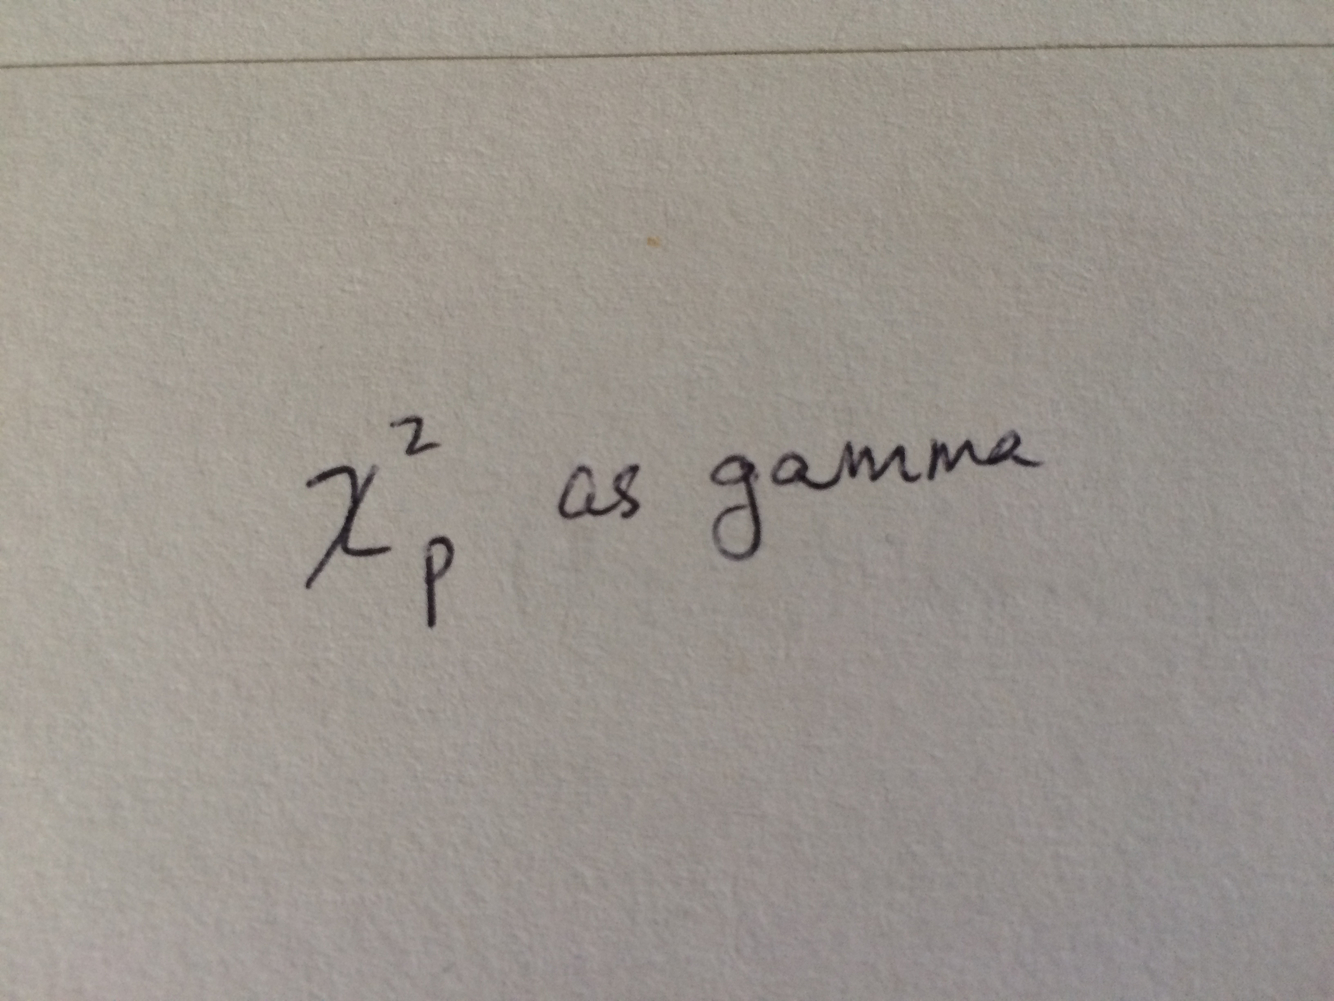 χ²ₚ as gamma